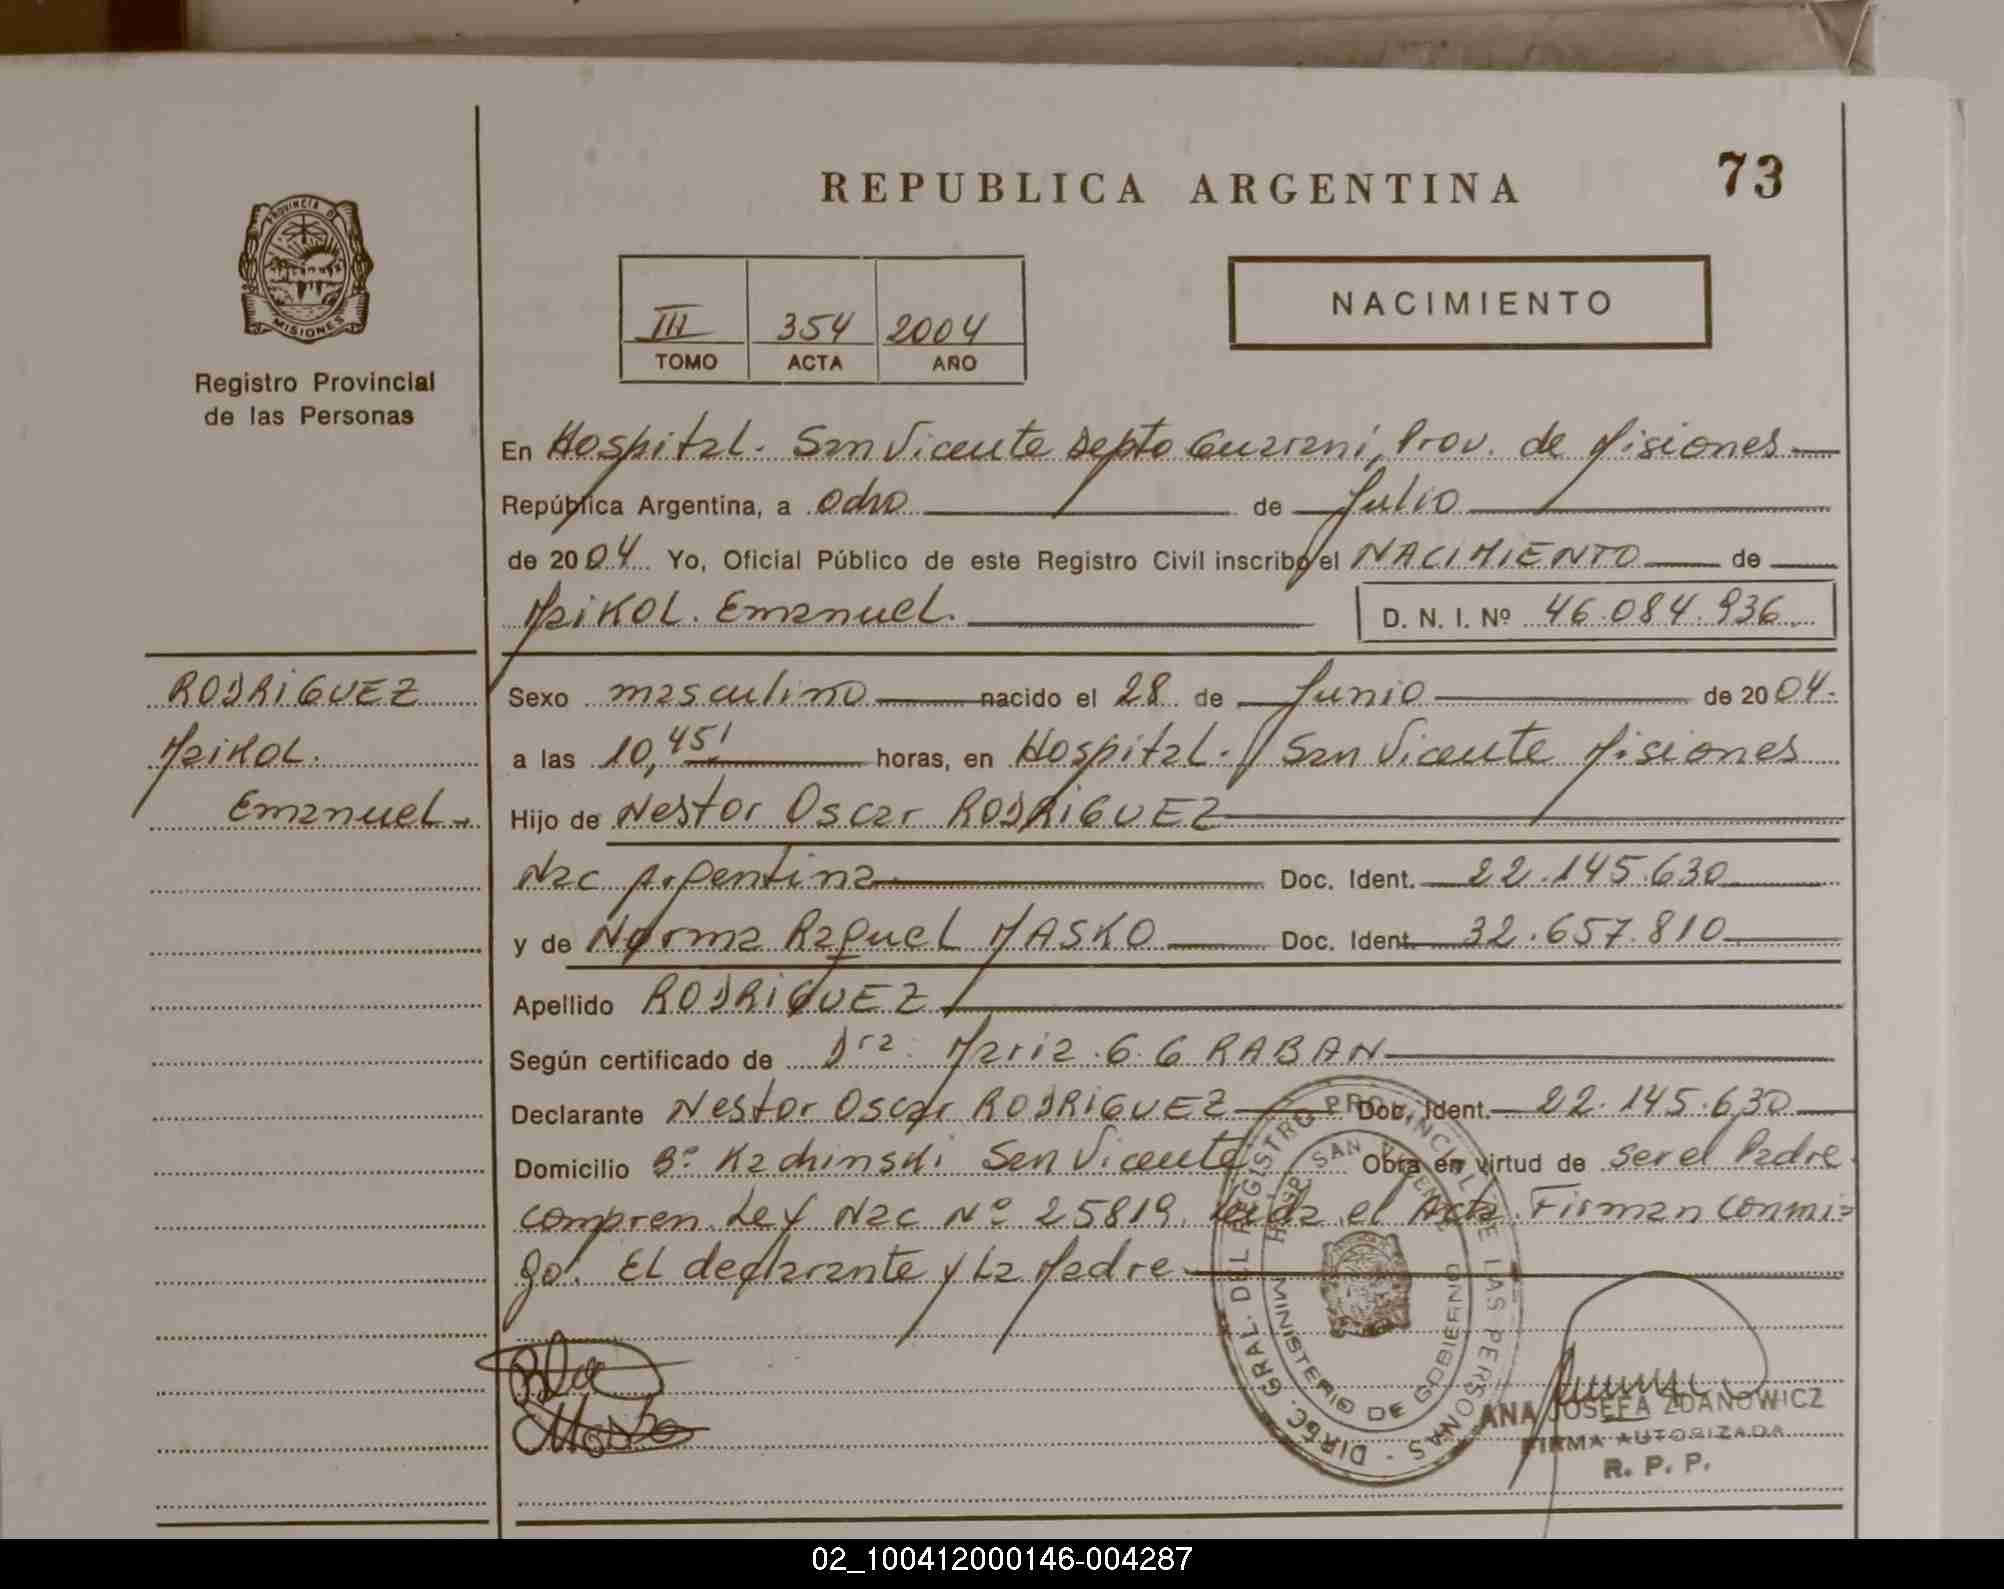 REPUBLICA ARGENTINA
73
PROVINCIA DE
MISIONES
Registro Provincial
de las Personas
III 354 2004
TOMO ACTA AÑO
NACIMIENTO
En Hospital. San Vicente Depto Guarani, Prov. de Misiones
República Argentina, a ocho de Julio
de 2004 Yo, Oficial Público de este Registro Civil inscribo el NACIMIENTO de
Maikol. Emanuel.
D. N. I. Nº 46.084.936
RODRIGUEZ
Maikol.
Emanuel
Sexo masculino nacido el 28 de Junio de 2004.
a las 10,45' horas, en Hospital. San Vicente Misiones
Hijo de Nestor Oscar RODRIGUEZ
Nac Argentina Doc. Ident. 22.145.630
y de Norma Raquel MASKO Doc. Ident. 32.657.810
Apellido RODRIGUEZ
Según certificado de Dra. Maria. G. GRABAN
Declarante Nestor Oscar RODRIGUEZ Doc. Ident. 22.145.630
Domicilio Bº Kachinski San Vicente Obra en virtud de ser el Padre.
compren. Ley Nac Nº 25819. leída el Acta. Firman conmi=
go. El declarante y La Madre
DIREC. GRAL. DEL REGISTRO PROVINCIAL DE LAS PERSONAS
HOSP. SAN VICENTE
MINISTERIO DE GOBIERNO
Masko
ANA JOSEFA ZDANOWICZ
FIRMA AUTORIZADA
R. P. P.
02_100412000146-004287